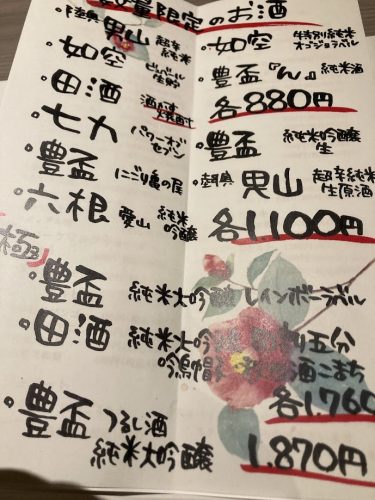 量限定のお酒
・陸奥男山 超辛純米
・如空 ピルピール生貯
・田酒 酒かす焼酎
・七力 パワーオブセブン
・豊盃 にごり亀の尾
・六根 愛山 純米吟醸
・如空 特別純米 オレンジラベル
・豊盃『ん』純米酒
各880円
・豊盃 純米吟醸 生
・陸奥男山 超辛純米 生原酒
各1,100円
極
・豊盃 純米大吟醸 レインボーラベル
・田酒 純米大吟醸 五分
吟烏帽子 酒こまち
各1,760
・豊盃 つるし酒
純米大吟醸 1,870円